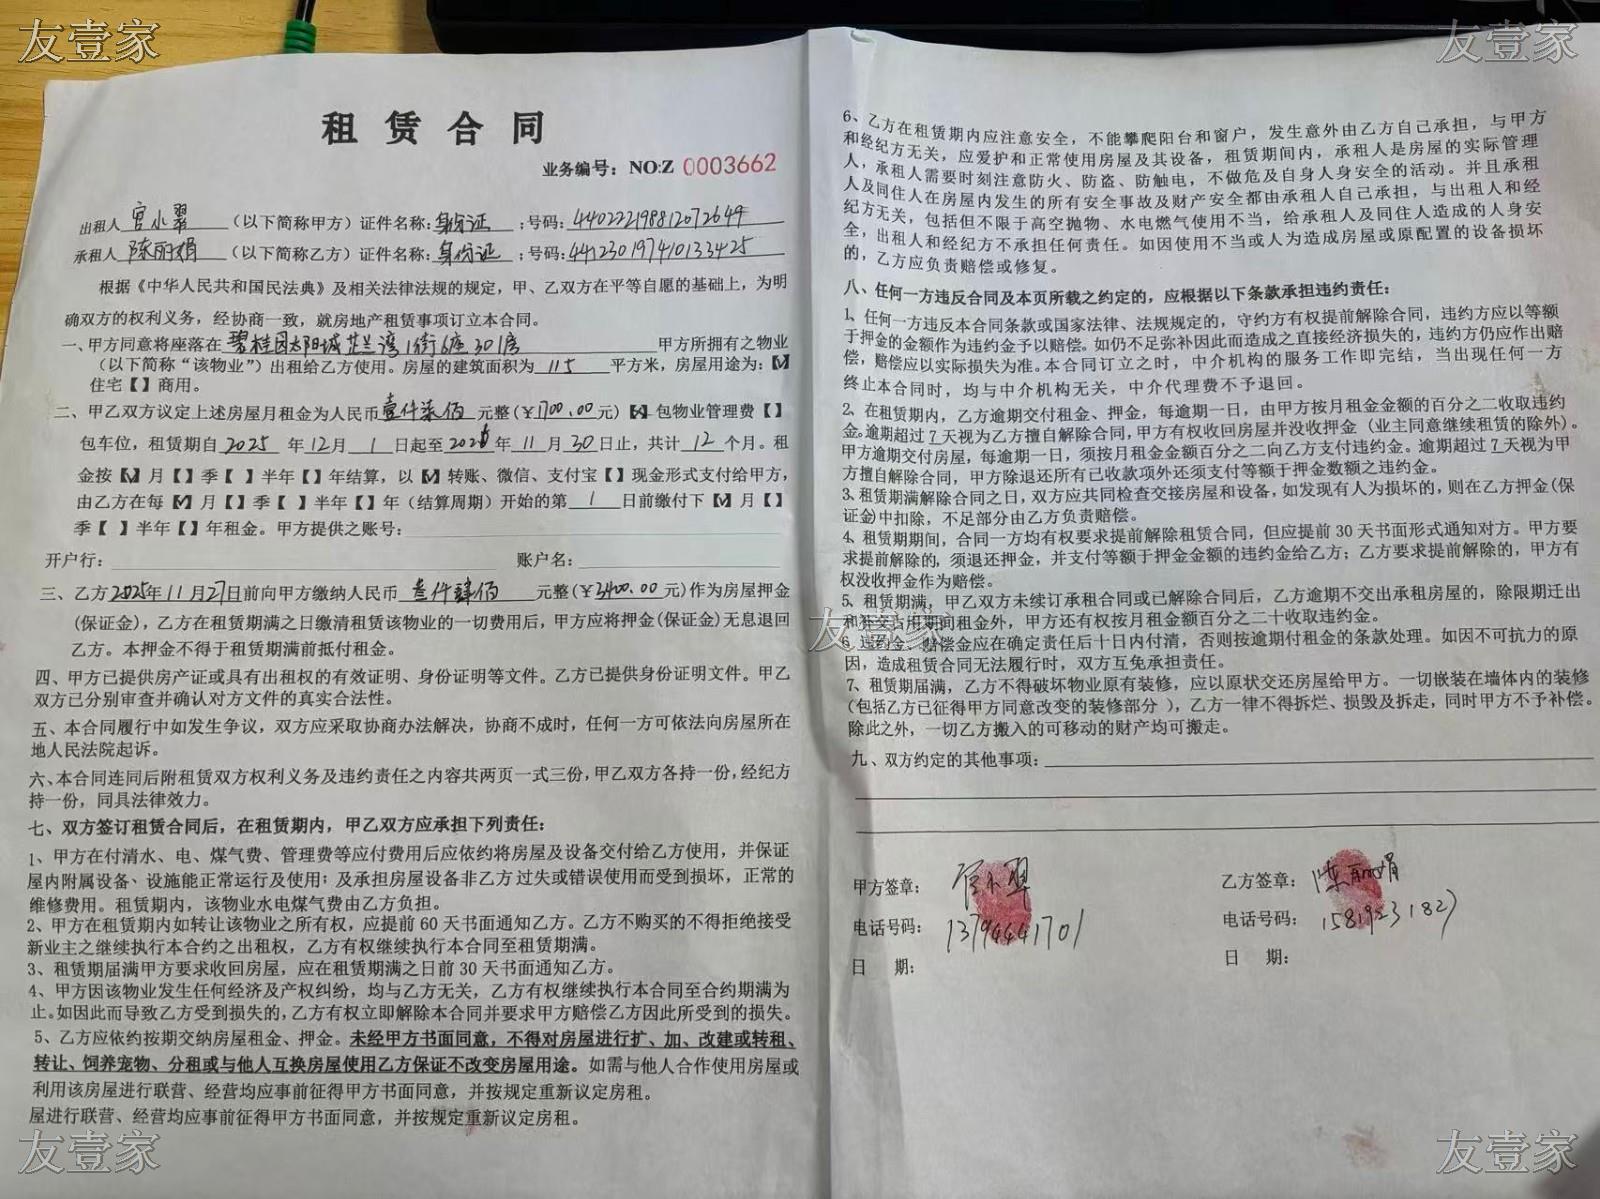 友壹家
友壹家
租 赁 合 同
业务编号：NO:Z 0003662
出租人 宫小翠 （以下简称甲方）证件名称：身份证 ；号码：440222198812072649
承租人 陈丽娟 （以下简称乙方）证件名称：身份证 ；号码：441230197410133425
根据《中华人民共和国民法典》及相关法律法规的规定，甲、乙双方在平等自愿的基础上，为明
确双方的权利义务，经协商一致，就房地产租赁事项订立本合同。
一、甲方同意将座落在 碧桂园太阳城芷兰湾1街6座301房 甲方所拥有之物业
（以下简称“该物业”）出租给乙方使用。房屋的建筑面积为 115 平方米，房屋用途为：【✓】
住宅【 】商用。
二、甲乙双方议定上述房屋月租金为人民币 壹仟柒佰 元整（￥1700.00元）【✓】包物业管理费【 】
包车位，租赁期自 2025 年 12 月 1 日起至 202 年 11 月 30 日止，共计 12 个月。租
金按【✓】月【 】季【 】半年【 】年结算，以【✓】转账、微信、支付宝【 】现金形式支付给甲方，
由乙方在每【✓】月【 】季【 】半年【 】年（结算周期）开始的第 1 日前缴付下【✓】月【 】
季【 】半年【 】年租金。甲方提供之账号：
开户行： 账户名：
三、乙方2025年11月27日前向甲方缴纳人民币 肆佰 元整（￥3400.00元）作为房屋押金
（保证金），乙方在租赁期满之日缴清租赁该物业的一切费用后，甲方应将押金（保证金）无息退回
乙方。本押金不得于租赁期满前抵付租金。
四、甲方已提供房产证或具有出租权的有效证明、身份证明等文件。乙方已提供身份证明文件。甲乙
双方已分别审查并确认对方文件的真实合法性。
五、本合同履行中如发生争议，双方应采取协商办法解决，协商不成时，任何一方可依法向房屋所在
地人民法院起诉。
六、本合同连同后附租赁双方权利义务及违约责任之内容共两页一式三份，甲乙双方各持一份，经纪方
持一份，同具法律效力。
七、双方签订租赁合同后，在租赁期内，甲乙双方应承担下列责任：
1、甲方在付清水、电、煤气费、管理费等应付费用后应依约将房屋及设备交付给乙方使用，并保证
屋内附属设备、设施能正常运行及使用；及承担房屋设备非乙方过失或错误使用而受到损坏，正常的
维修费用。租赁期内，该物业水电煤气费由乙方负担。
2、甲方在租赁期内如转让该物业之所有权，应提前 60 天书面通知乙方。乙方不购买的不得拒绝接受
新业主之继续执行本合约之出租权，乙方有权继续执行本合同至租赁期满。
3、租赁期届满甲方要求收回房屋，应在租赁期满之日前 30 天书面通知乙方。
4、甲方因该物业发生任何经济及产权纠纷，均与乙方无关，乙方有权继续执行本合同至合约期满为
止。如因此而导致乙方受到损失的，乙方有权立即解除本合同并要求甲方赔偿乙方因此所受到的损失。
5、乙方应依约按期交纳房屋租金、押金。未经甲方书面同意，不得对房屋进行扩、加、改建或转租、
转让、饲养宠物、分租或与他人互换房屋使用乙方保证不改变房屋用途。如需与他人合作使用房屋或
利用该房屋进行联营、经营均应事前征得甲方书面同意，并按规定重新议定房租。
屋进行联营、经营均应事前征得甲方书面同意，并按规定重新议定房租。
6、乙方在租赁期内应注意安全，不能攀爬阳台和窗户，发生意外由乙方自己承担，与甲方
和经纪方无关，应爱护和正常使用房屋及其设备，租赁期间内，承租人是房屋的实际管理
人，承租人需要时刻注意防火、防盗、防触电，不做危及自身人身安全的活动。并且承租
人及同住人在房屋内发生的所有安全事故及财产安全都由承租人自己承担，与出租人和经
纪方无关，包括但不限于高空抛物、水电燃气使用不当，给承租人及同住人造成的人身安
全，出租人和经纪方不承担任何责任。如因使用不当或人为造成房屋或原配置的设备损坏
的，乙方应负责赔偿或修复。
八、任何一方违反合同及本页所载之约定的，应根据以下条款承担违约责任：
1、任何一方违反本合同条款或国家法律、法规规定的，守约方有权提前解除合同，违约方应以等额
于押金的金额作为违约金予以赔偿。如仍不足弥补因此而造成之直接经济损失的，违约方仍应作出赔
偿，赔偿应以实际损失为准。本合同订立之时，中介机构的服务工作即完结，当出现任何一方
终止本合同时，均与中介机构无关，中介代理费不予退回。
2、在租赁期内，乙方逾期交付租金、押金，每逾期一日，由甲方按月租金金额的百分之二收取违约
金。逾期超过 7 天视为乙方擅自解除合同，甲方有权收回房屋并没收押金（业主同意继续租赁的除外）。
甲方逾期交付房屋，每逾期一日，须按月租金金额百分之二向乙方支付违约金。逾期超过 7 天视为甲
方擅自解除合同，甲方除退还所有已收款项外还须支付等额于押金数额之违约金。
3、租赁期满解除合同之日，双方应共同检查交接房屋和设备，如发现有人为损坏的，则在乙方押金（保
证金）中扣除，不足部分由乙方负责赔偿。
4、租赁期期间，合同一方均有权要求提前解除租赁合同，但应提前 30 天书面形式通知对方。甲方要
求提前解除的，须退还押金，并支付等额于押金金额的违约金给乙方；乙方要求提前解除的，甲方有
权没收押金作为赔偿。
5、租赁期满，甲乙双方未续订承租合同或已解除合同后，乙方逾期不交出承租房屋的，除限期迁出
和补交占用期间租金外，甲方还有权按月租金额百分之二十收取违约金。
友壹家
6、违约金、赔偿金应在确定责任后十日内付清，否则按逾期付租金的条款处理。如因不可抗力的原
因，造成租赁合同无法履行时，双方互免承担责任。
7、租赁期届满，乙方不得破坏物业原有装修，应以原状交还房屋给甲方。一切嵌装在墙体内的装修
（包括乙方已征得甲方同意改变的装修部分），乙方一律不得拆烂、损毁及拆走，同时甲方不予补偿。
除此之外，一切乙方搬入的可移动的财产均可搬走。
九、双方约定的其他事项：
甲方签章： 宫小翠
电话号码： 13794441701
日 期：
乙方签章： 陈丽娟
电话号码： 15819231827
日 期：
友壹家
友壹家